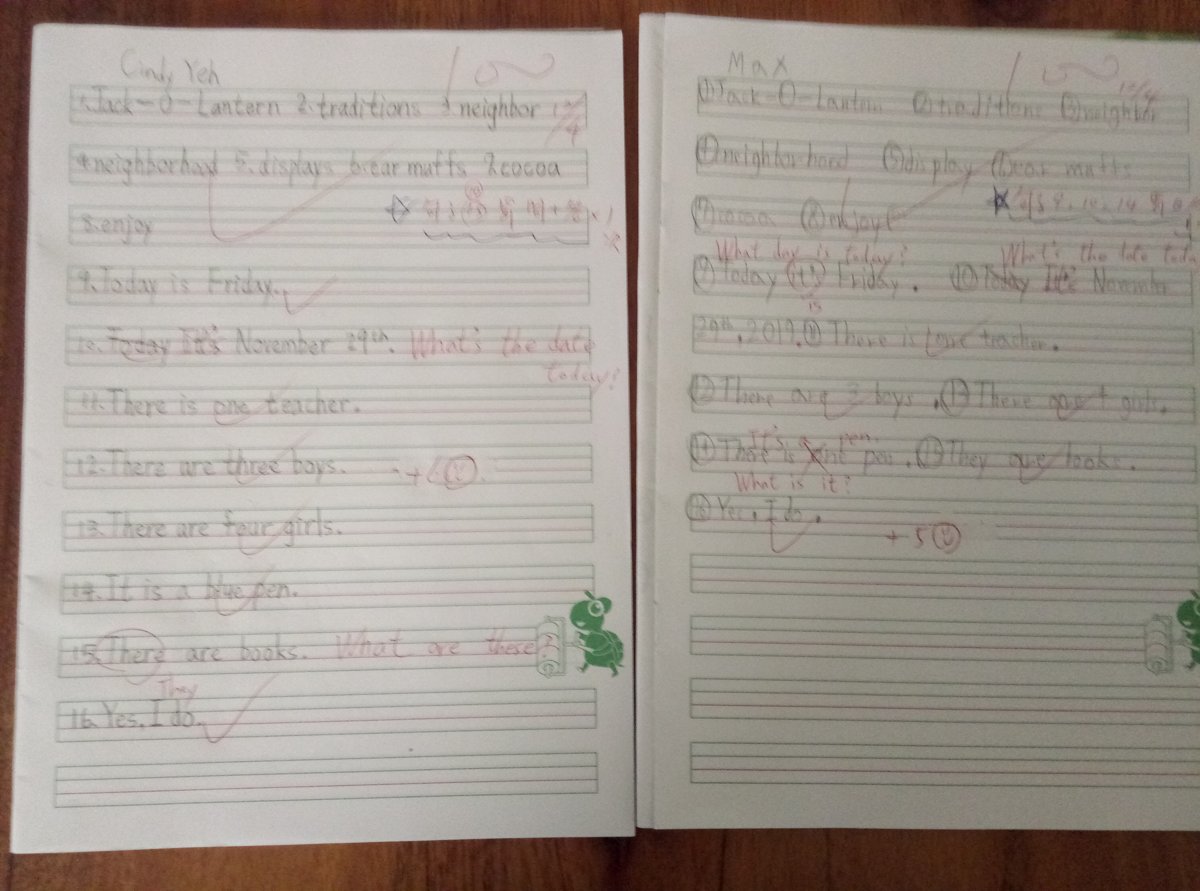 Cindy Yeh
1. Jack-O-Lantern 2. traditions 3. neighbor 12/4
4. neighborhood 5. displays 6. ear muffs 7. cocoa
8. enjoy
9. Today is Friday.
10. Today It's November 29th. What's the date
today?
11. There is one teacher.
12. There are three boys. +6
13. There are four girls.
14. It is a blue pen.
15. There are books. What are these?
They
16. Yes, I do.
Max
12/4
① Jack-O-Lantern ② traditions ③ neighbor
④ neighborhood ⑤ display ⑥ ear muffs
⑦ cocoa ⑧ enjoy
What day is today? What's the date toda
⑨ Today it's Friday. ⑩ Today It's November
is
29th, 2019. ⑪ There is one teacher.
⑫ There are 3 boys. ⑬ There are 4 girls.
It's a pen.
⑭ That is pen. ⑮ They are books.
What is it?
⑯ Yes, I do.
+5